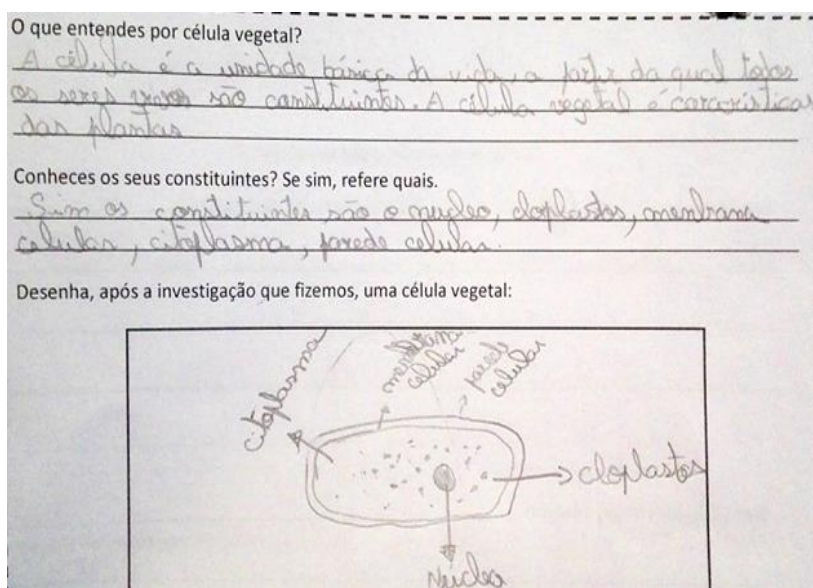 O que entendes por célula vegetal?
A célula é a unidade básica da vida, a partir da qual todos
os seres vivos são constituintes. A célula vegetal é caracoristicas
das plantas
Conheces os seus constituintes? Se sim, refere quais.
Sim os constituintes são o nucleo, cloplastos, membrana
celular, citoplasma, parede celular.
Desenha, após a investigação que fizemos, uma célula vegetal:
citoplasma
membrana
celular
parede
celular
cloplastos
Nucleo